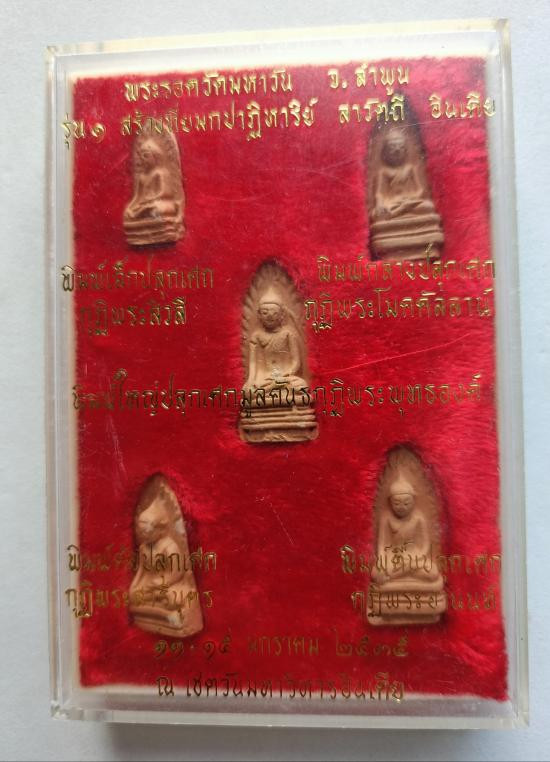 พระรอดวัดมหาวัน จ. ลำพูน
รุ่น ๑ สร้างที่ยมกปาฏิหาริย์ สาวัตถี อินเดีย
พิมพ์เล็กปลุกเศก
กุฏิพระสิวลี
พิมพ์กลางปลุกเศก
กุฏิพระโมคคัลลาน์
พิมพ์ใหญ่ปลุกเศกมูลคันธกุฏิพระพุทธองค์
พิมพ์ต้อปลุกเศก
กุฏิพระสารีบุตร
พิมพ์ตื้นปลุกเศก
กุฏิพระอานนท์
๑๕ มกราคม ๒๕๓๕
ณ เชตวันมหาวิหารอินเดีย